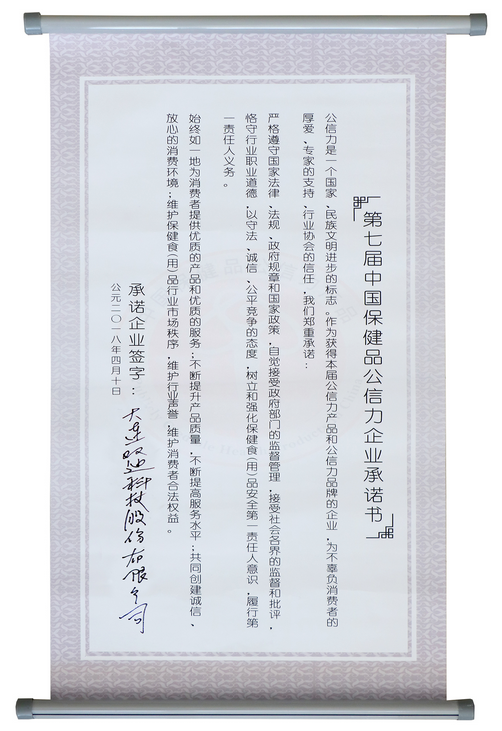 第七届中国保健品公信力企业承诺书
公信力是一个国家、民族文明进步的标志。作为获得本届公信力产品和公信力品牌的企业，为不辜负消费者的
厚爱、专家的支持、行业协会的信任，我们郑重承诺：
严格遵守国家法律、法规、政府规章和国家政策，自觉接受政府部门的监督管理，接受社会各界的监督和批评，
恪守行业职业道德，以守法、诚信、公平竞争的态度，树立和强化保健食(用)品安全第一责任人意识，履行第
一责任人义务。
始终如一地为消费者提供优质的产品和优质的服务；不断提升产品质量，不断提高服务水平；共同创建诚信、
放心的消费环境；维护保健食(用)品行业市场秩序，维护行业声誉，维护消费者合法权益。
承诺企业签字：大连双迪科技股份有限公司
公元二〇一八年四月十日